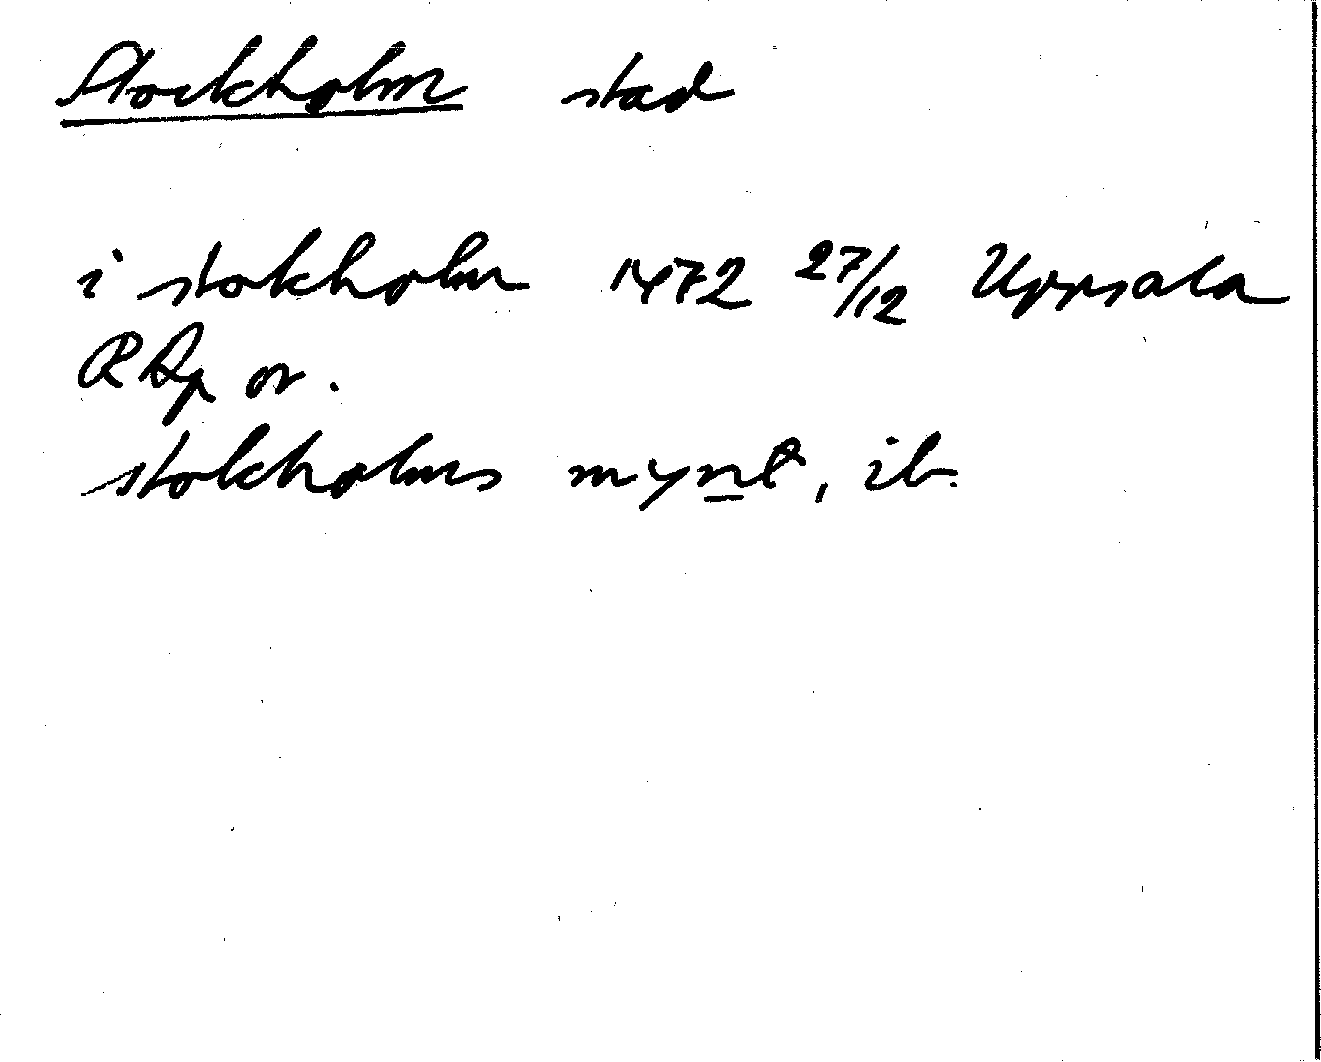 Stockholm stad
i stokholm 1472 27/12 Uppsala
RAp or.
stokholms mynt, ib.